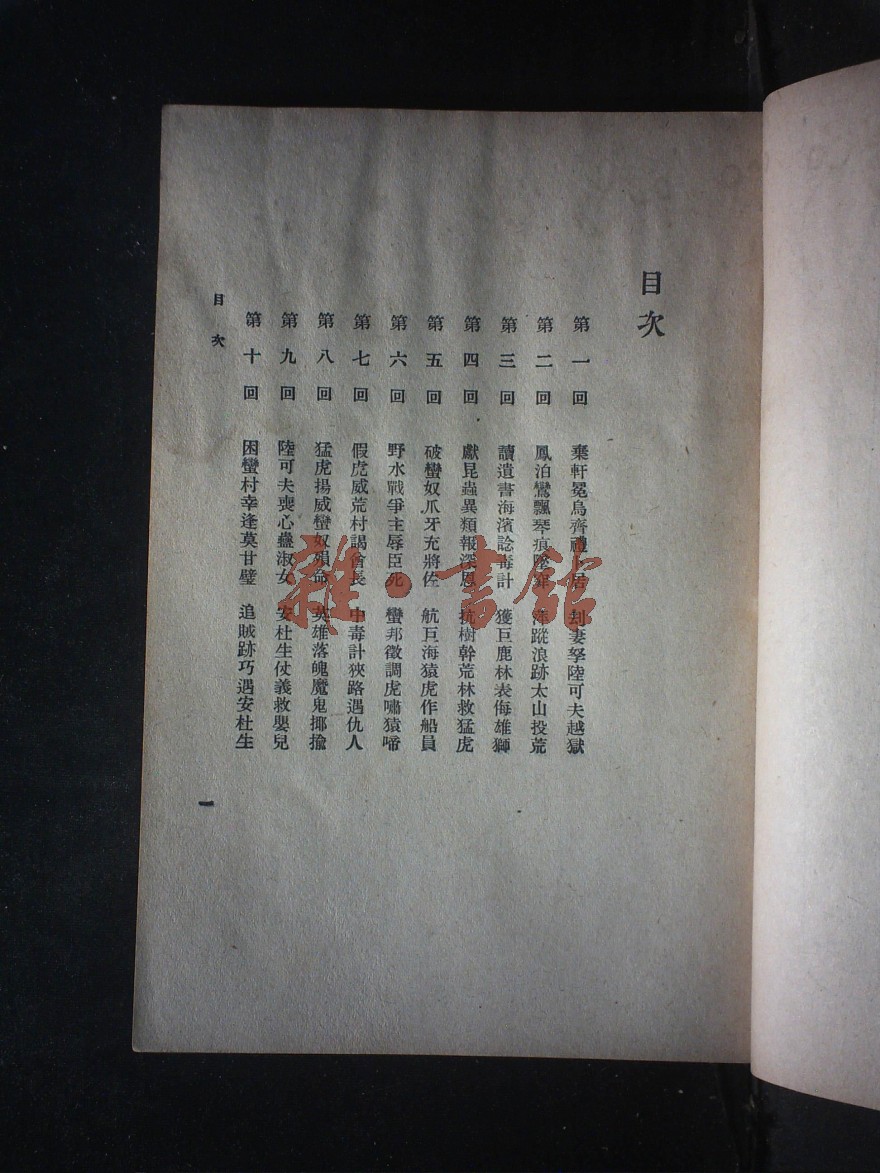 目次
第一回 棄軒冕烏齊禮卜居 刦妻孥陸可夫越獄
第二回 鳳泊鸞飄琴痕墜 浪跡太山投荒
第三回 讀遺書海濱諗毒計 獲巨鹿林表侮雄獅
第四回 獻昆蟲異類報深恩 抗樹幹荒林救猛虎
第五回 破蠻奴爪牙充將佐 航巨海猿虎作船員
第六回 野水戰爭主辱臣死 蠻邦徵調虎嘯猿啼
第七回 假虎威荒村謁酋長 中毒計狹路遇仇人
第八回 猛虎揚威蠻奴殞命 英雄落魄魔鬼揶揄
第九回 陸可夫喪心蠱淑女 安杜生仗義救嬰兒
第十回 困蠻村幸逢莫甘璧 追賊跡巧遇安杜生
目次
一
雜·書館